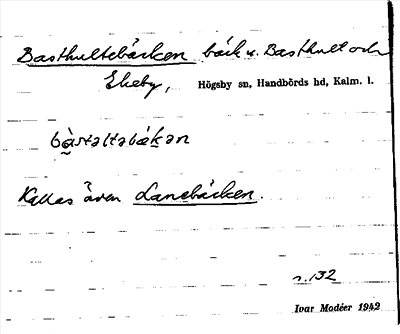 Basthultebäcken bäck v. Basthult och
Ekeby, Högsby sn, Handbörds hd, Kalm. l.
bàstəltəbäkən
Kallas även Lanebäcken.
s. 132
Ivar Modéer 1942